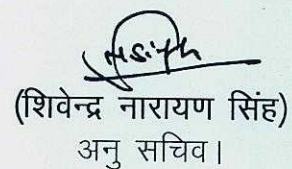 (शिवेन्द्र नारायण सिंह)
अनु सचिव।